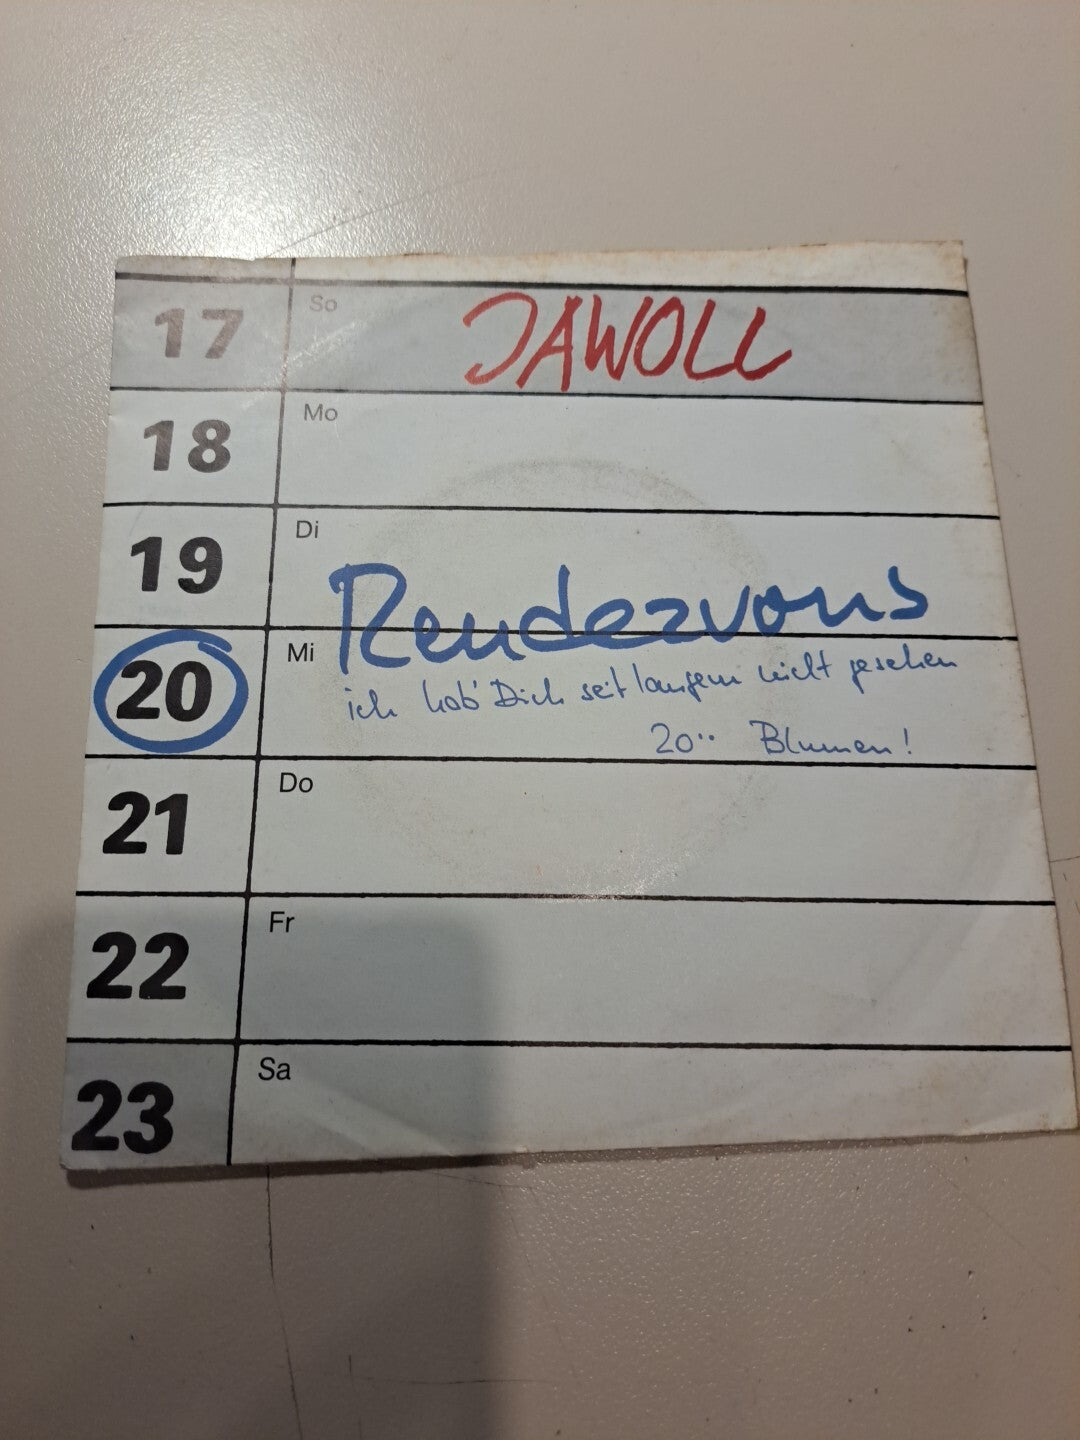 17 So JAWOLL
18 Mo
19 Di
Rendezvous
20 Mi
ich hab' Dich seit langem nicht gesehen
20°° Blumen!
21 Do
22 Fr
23 Sa